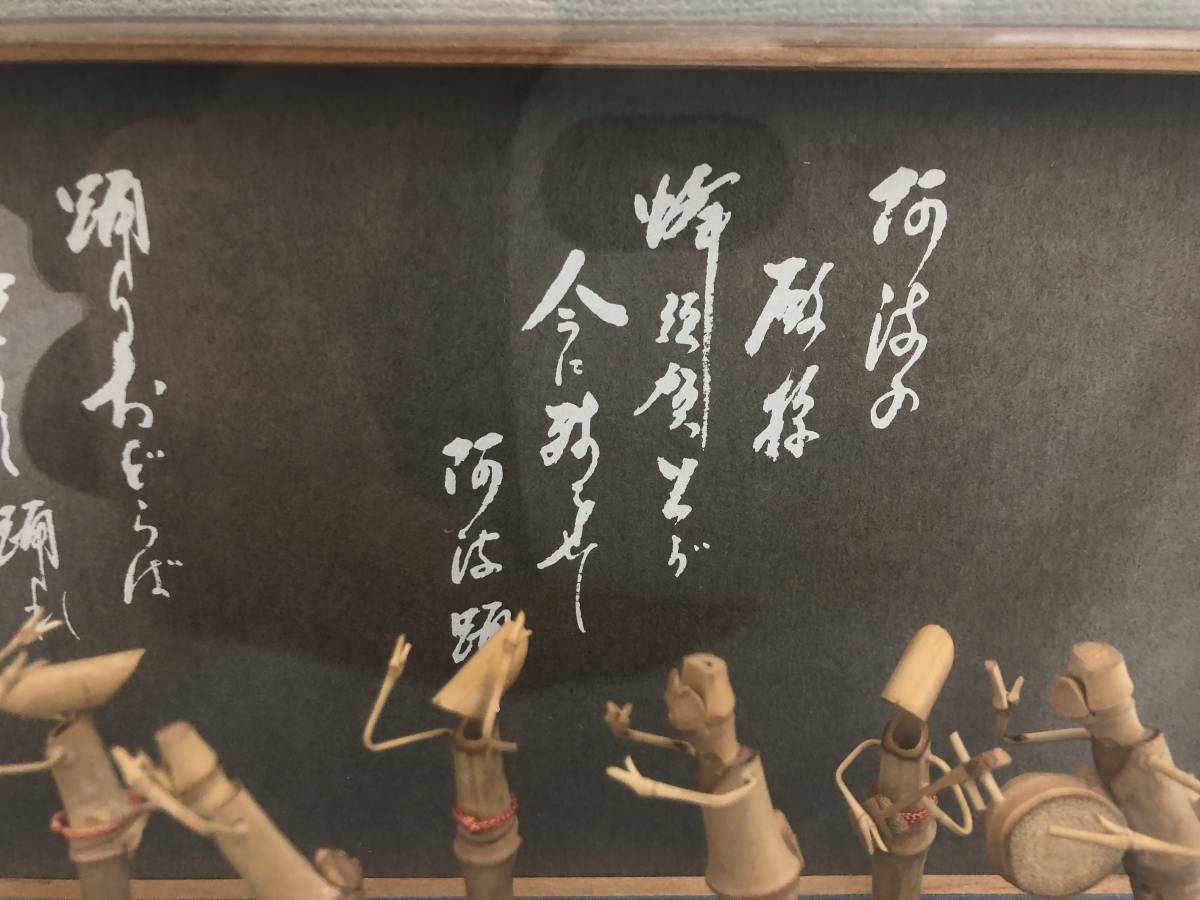 阿波の
殿様
蜂須賀公が
今に残せし
阿波踊
踊りおどらば
踊れ